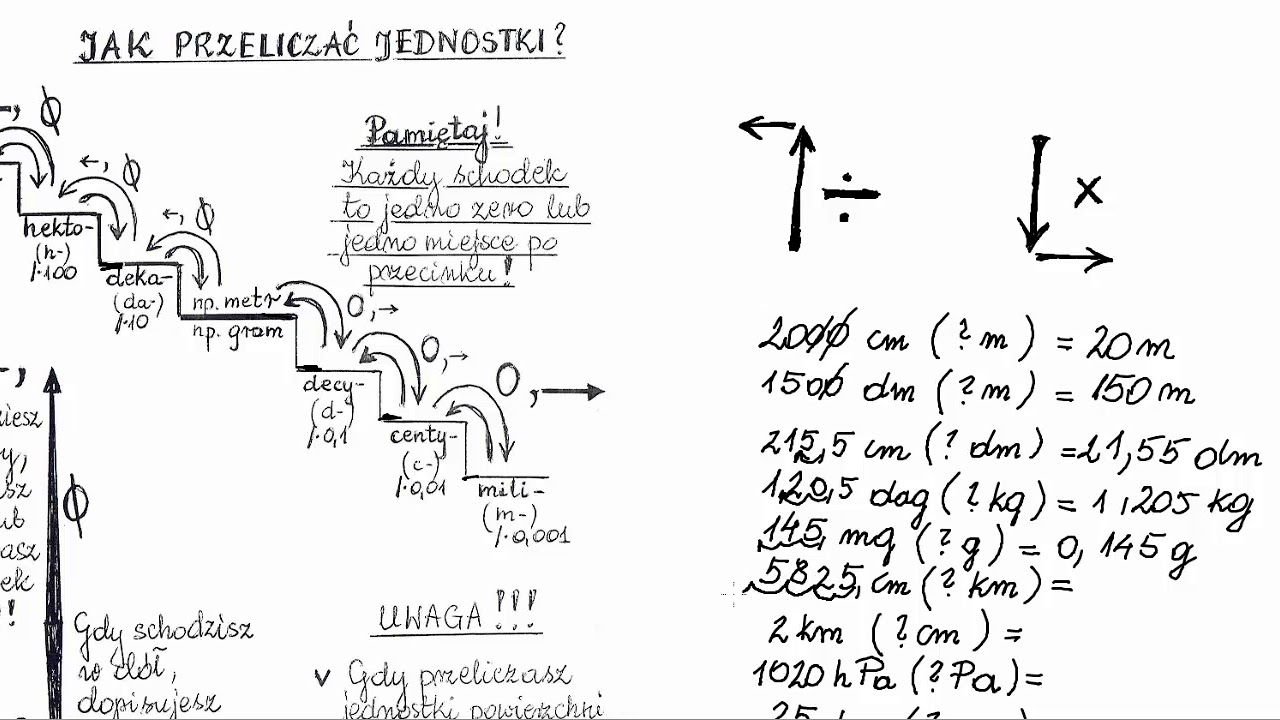 JAK PRZELICZAĆ JEDNOSTKI?
←, 0
←, 0
hekto-
(h-)
1·100
deka-
(da-)
1·10
np. metr
np. gram
0,→
decy-
(d-)
1·0,1
0,→
centy-
(c-)
1·0,01
0,→
mili-
(m-)
1·0,001
Pamiętaj!
Każdy schodek
to jedno zero lub
jedno miejsce po
przecinku!
0
Gdy schodzisz
w dół,
dopisujesz
UWAGA!!!
v Gdy przeliczasz
jednostki powierzchni
÷
x
2000 cm (? m) = 20 m
1500 dm (? m) = 150 m
215,5 cm (? dm) = 21,55 dm
120,5 dag (? kg) = 1,205 kg
145, mg (? g) = 0,145 g
5825, cm (? km) =
2 km (? cm) =
1020 hPa (? Pa) =